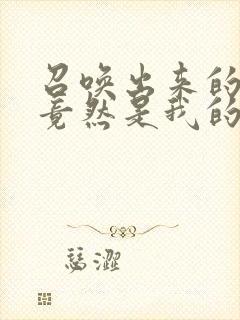 召唤出来的
竟然是我的
瑟澀